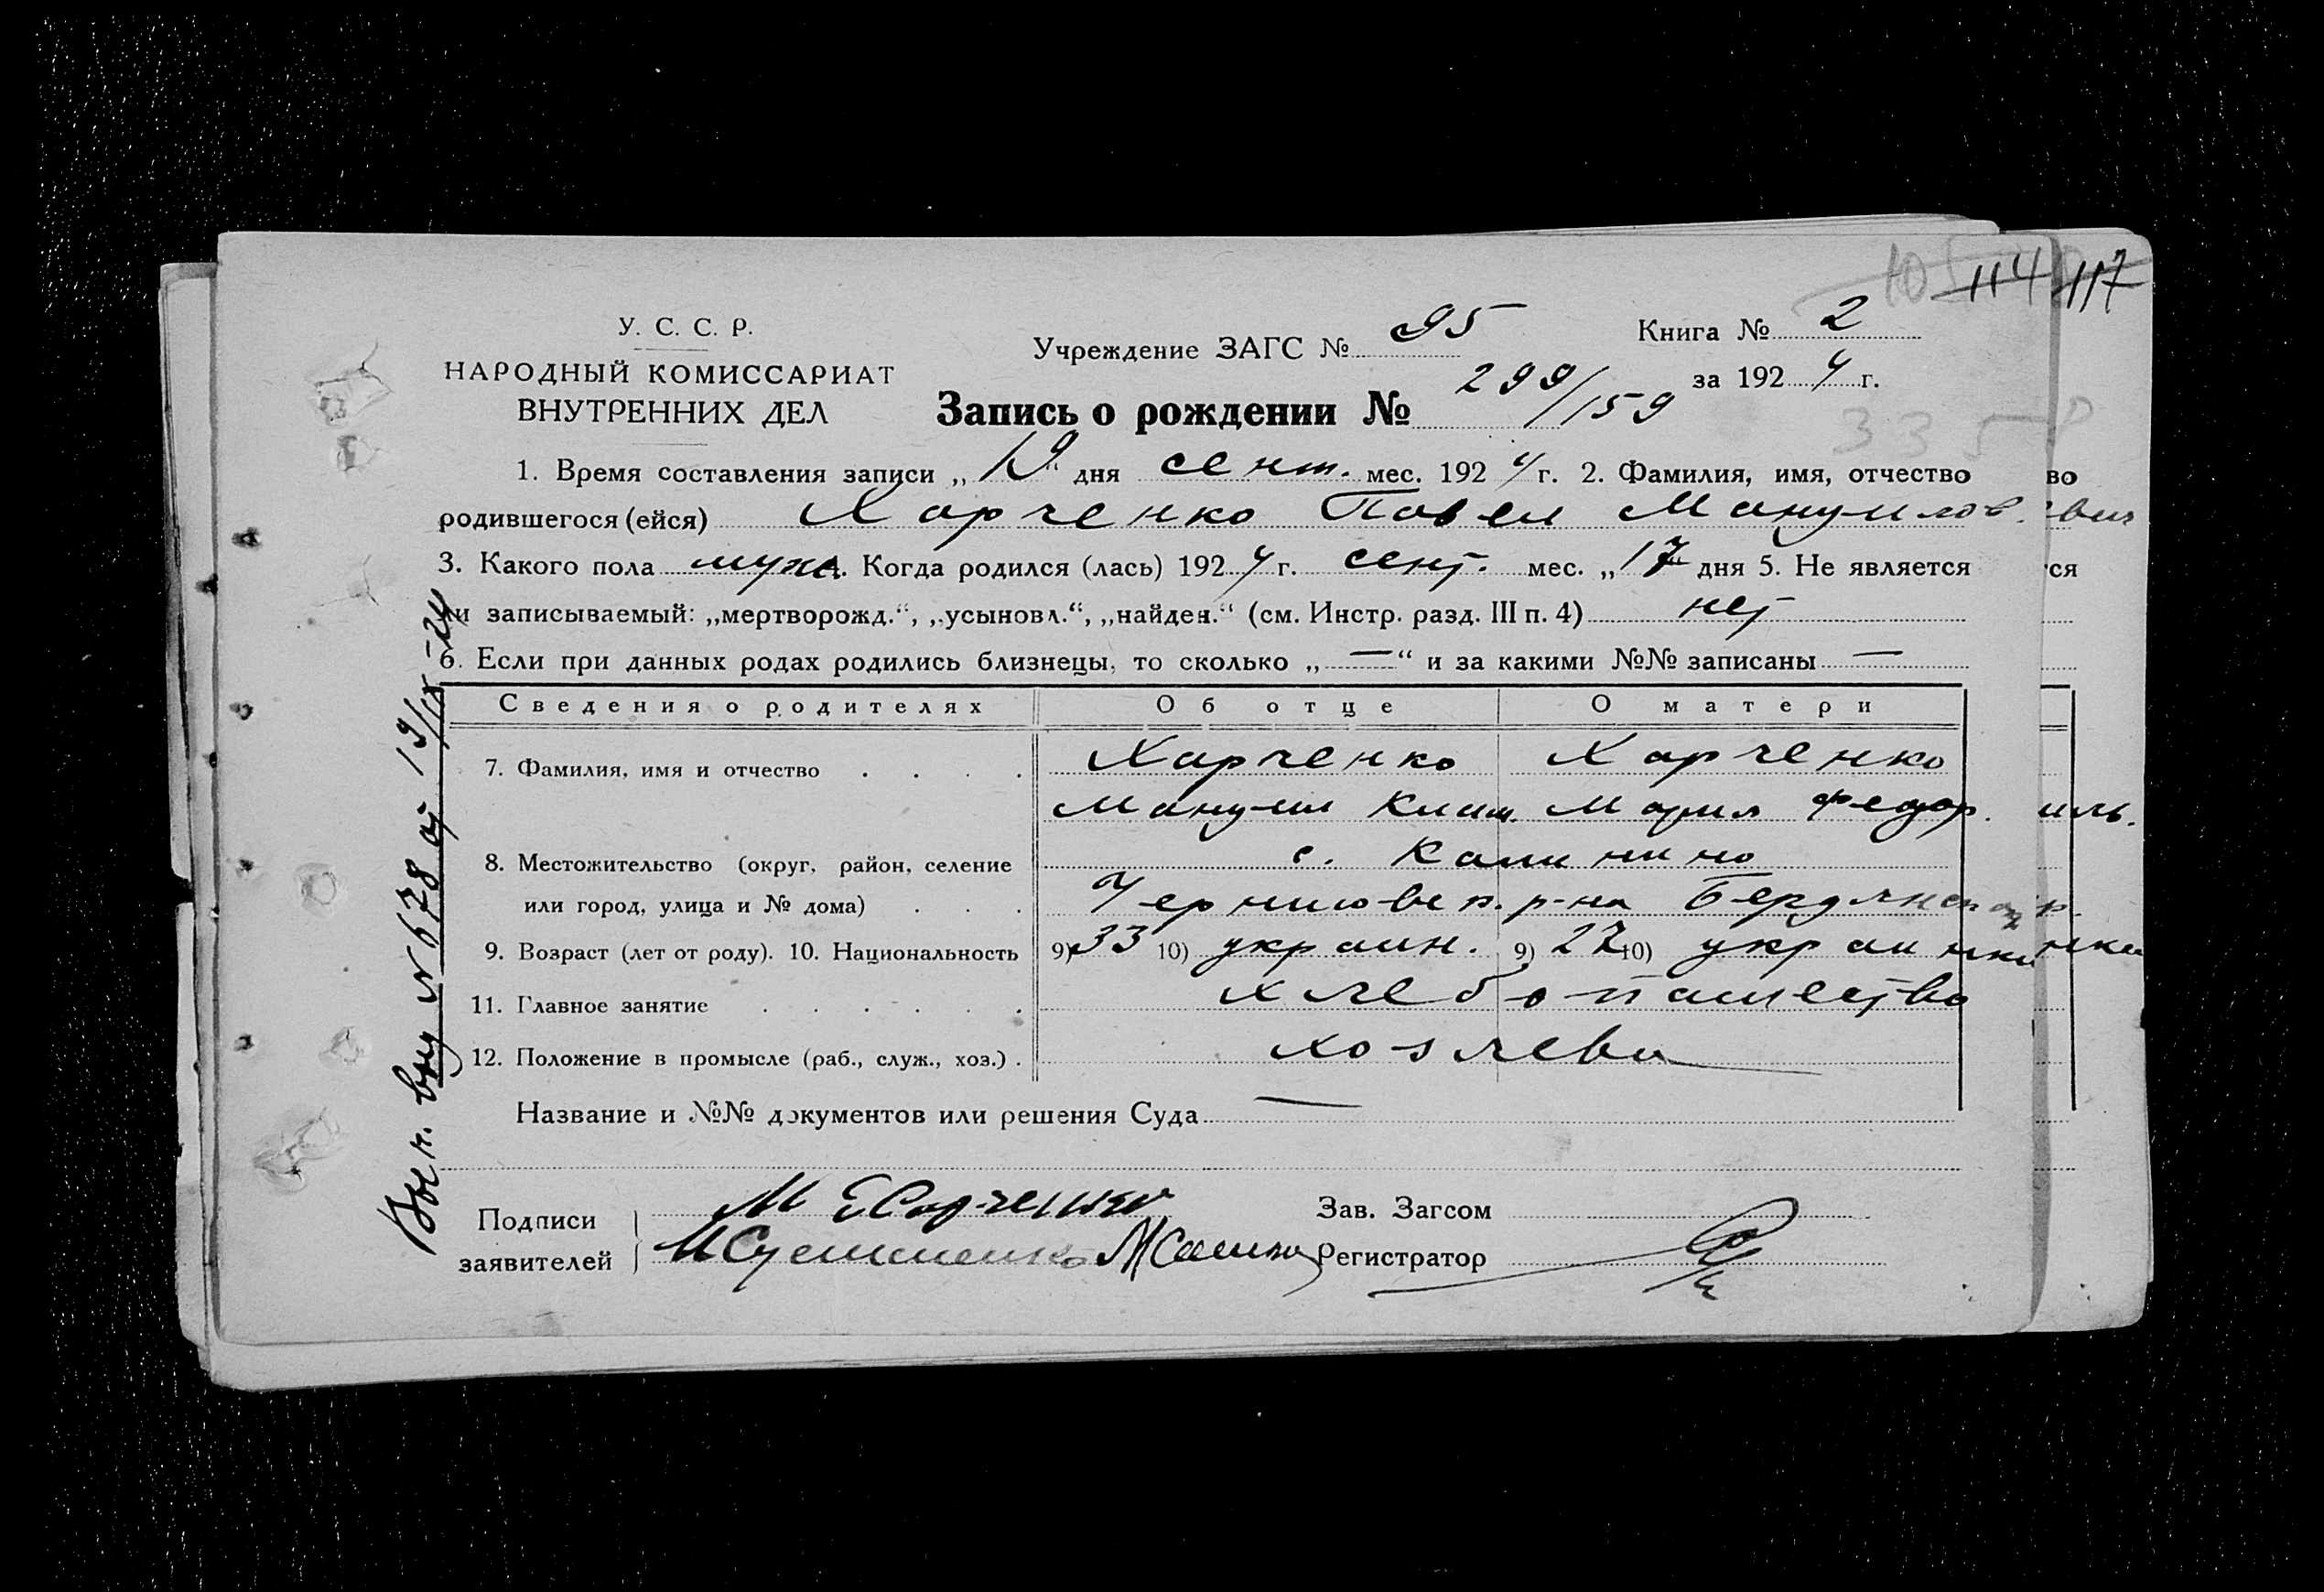 114 117
У. С. С. Р.
НАРОДНЫЙ КОМИССАРИАТ
ВНУТРЕННИХ ДЕЛ
Учреждение ЗАГС № 95
Книга № 2
за 1924 г.
Запись о рождении № 299/159
335
1. Время составления записи „19" дня сент. мес. 1924 г. 2. Фамилия, имя, отчество во
родившегося (ейся) Харченко Павел Мануилов. евич
3. Какого пола муж. Когда родился (лась) 1924 г. сент. мес. „17" дня 5. Не является ся
ли записываемый: „мертворожд.“, „усыновл.“, „найден.“ (см. Инстр. разд. III п. 4) нет
6. Если при данных родах родились близнецы, то сколько „—“ и за какими №№ записаны —
Сведения о родителях Об отце О матери
7. Фамилия, имя и отчество . . . . Харченко Харченко
Мануил Клим. Мария Федор. иль.
8. Местожительство (округ, район, селение с. Калинино
или город, улица и № дома) . . . Черниговск. р-на Бердянск. окр.
9. Возраст (лет от роду). 10. Национальность 9) 33 10) украин. 9) 27 10) украинка нка
11. Главное занятие . . . . . . хлебопашество
12. Положение в промысле (раб., служ., хоз.) . хозяева
Название и №№ документов или решения Суда —
Подписи М Харченко Зав. Загсом
заявителей Регистратор
Вып. вну № 678 от 19/IX-24